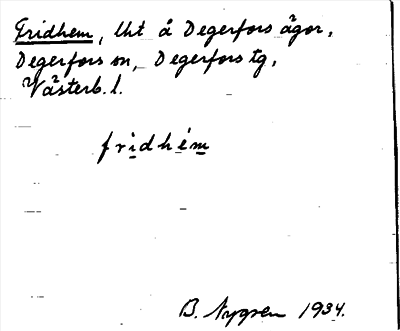 Fridhem, lht å Degerfors ägor,
Degerfors sn, Degerfors tg,
Västerb. l.
fridhém
B. Nygren 1934.